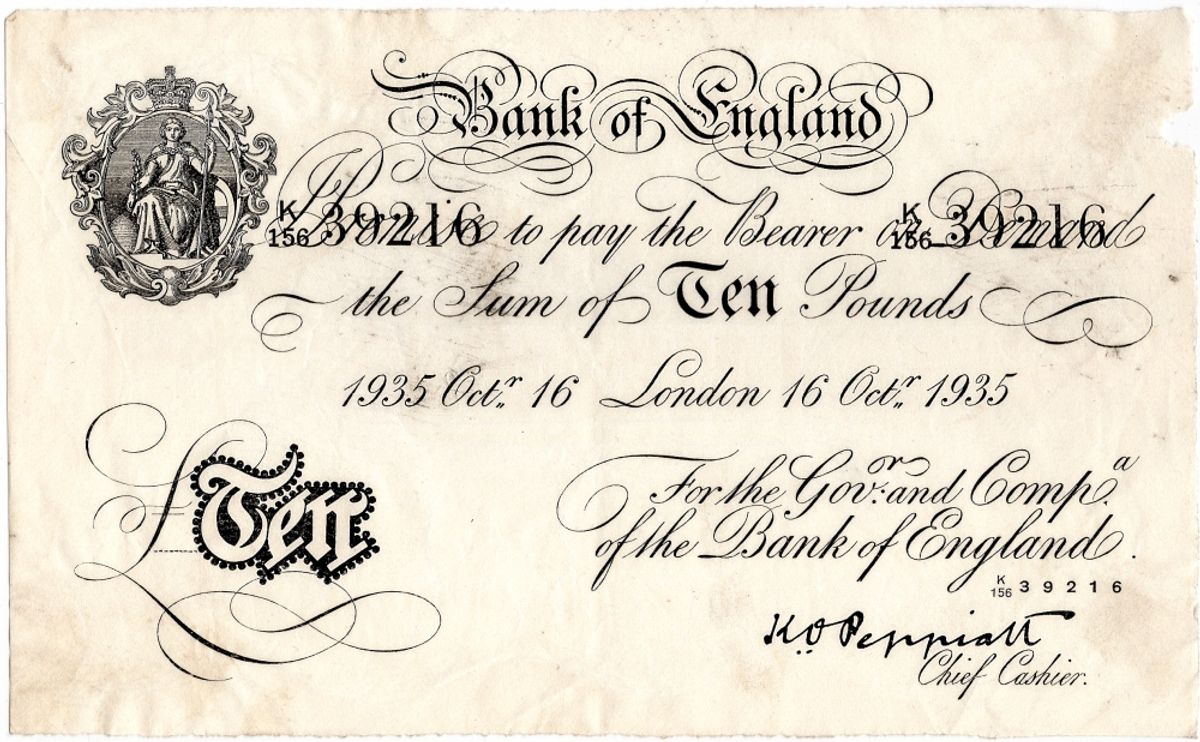 Bank of England
K
156 39216 K
156 39216
Promise to pay the Bearer on Demand
the Sum of Ten Pounds
1935 Octr. 16 London 16 Octr. 1935
£Ten
For the Govr. and Compa.
of the Bank of England.
K
156 39216
K.O. Peppiatt
Chief Cashier.